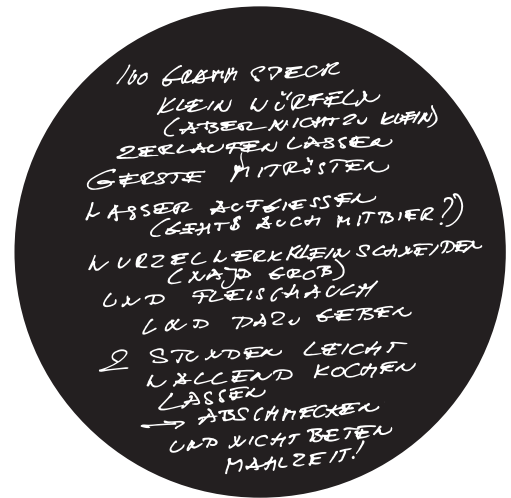 100 GRAMM SPECK
KLEIN WÜRFELN
(ABER NICHT ZU KLEIN)
ZERLAUFEN LASSEN
GERSTE MITRÖSTEN
WASSER AUFGIESSEN
(GEHTS AUCH MIT BIER?)
WURZELWERK KLEIN SCHNEIDEN
(NAJO GROB)
UND FLEISCH AUCH
UND DAZU GEBEN
2 STUNDEN LEICHT
WALLEND KOCHEN
LASSEN
→ ABSCHMECKEN
UND NICHT BETEN
MAHLZEIT!